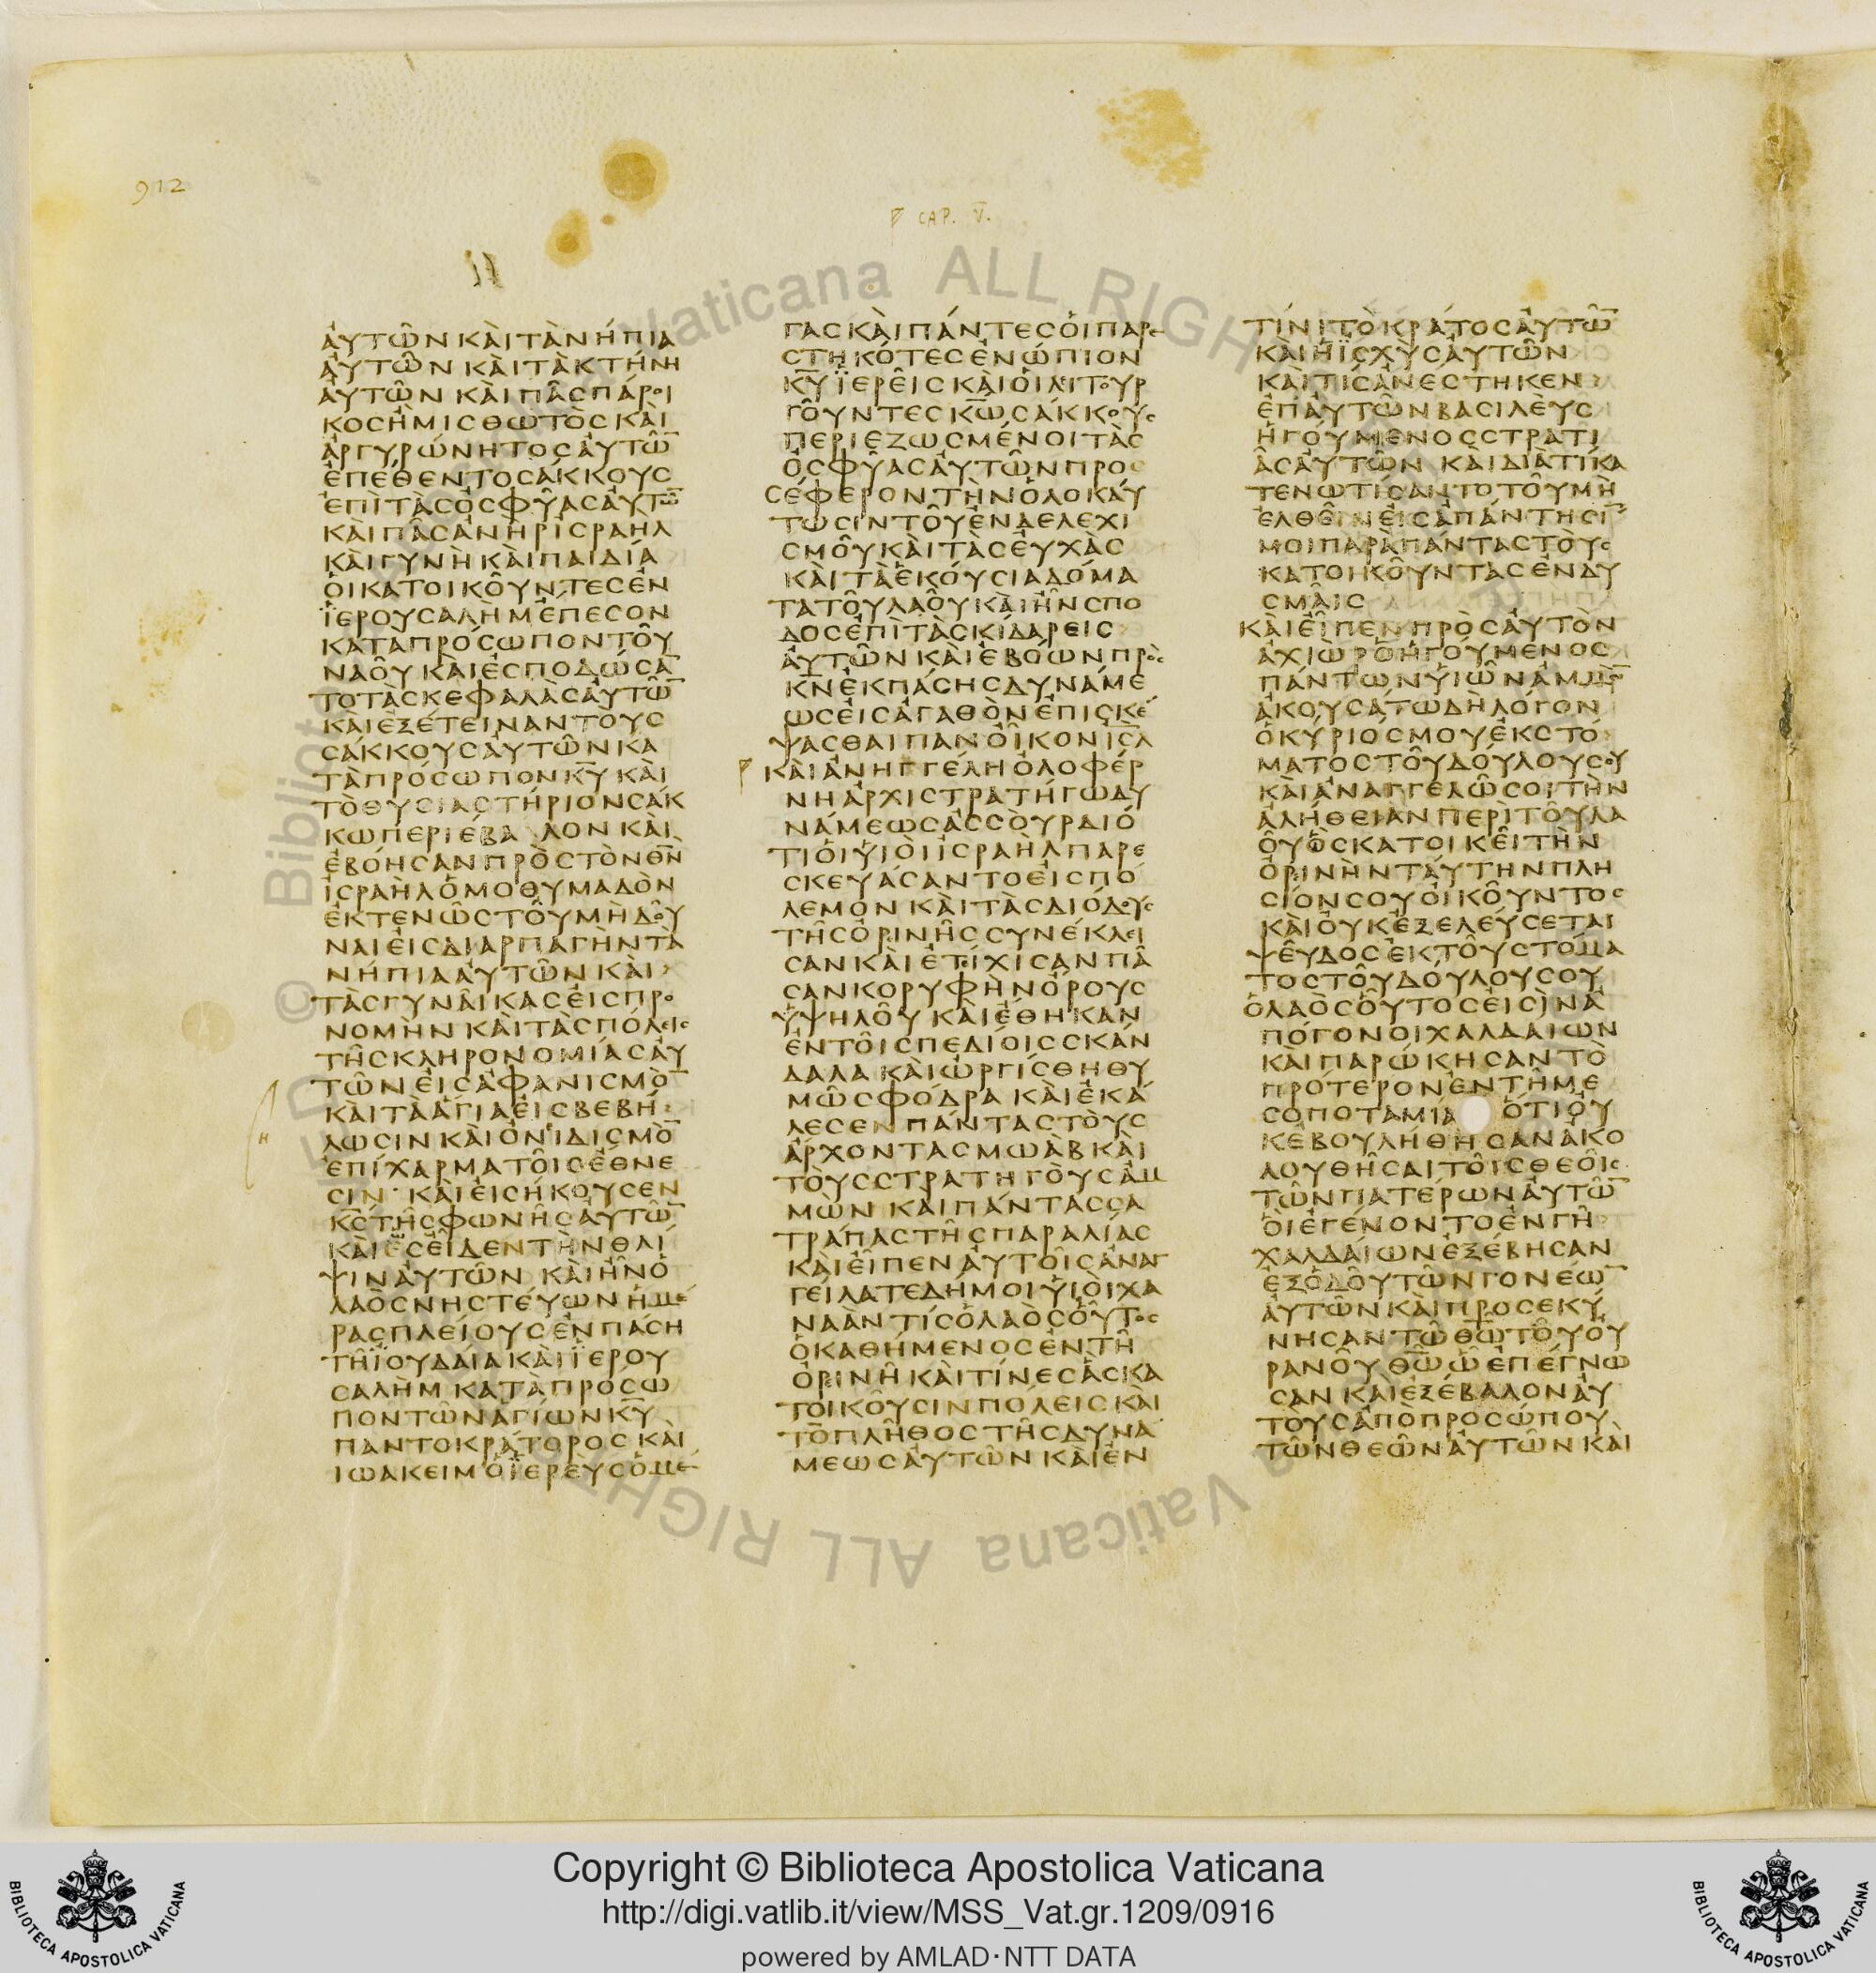 912
CAP. V.
ἀυτῶν κὰι τὰ νήπια
ἀυτῶν κὰι τὰ κτήνη
ἀυτῶν κὰι πᾶς πάροι
κος ἢ μισθωτὸς κὰι
ἀργυρώνητος ἀυτῶ̅
ἐπέθεντο σάκκους
ἐπὶ τὰς ὀσφύας ἀυτῶ̅
κὰι πᾶς ἀνὴρ ἰσραηλ
κὰι γυνὴ κὰι παιδία
ὁι κατοικοῦντες ἐν
ϊερουσαλὴμ ἔπεσον
κατα πρόσωπον τοῦ
ναοῦ κὰι ἐσποδώσα̅
το τὰς κεφαλὰς ἀυτῶ̅
κὰι ἐξέτειναν τοὺς
σάκκους ἀυτῶν κα
τὰ πρόσωπον κ̅υ̅ κὰι
τὸ θυσιαστήριον σάκ
κω περιέβα λον κὰι
ἐβόησαν πρὸς τὸν θ̅ν̅
ἰσραὴλ ὁμοθυμαδὸν
ἐκτενῶς τοῦ μὴ δοῦ
ναι ἐις διαρπαγὴν τὰ
νήπια ἀυτῶν κὰι
τὰς γυνᾶικας ἐις προ
νομὴν κὰι τὰς πόλεις
τῆς κληρονομίας ἀυ
τῶν ἐις ἀφανισμὸ̅
κὰι τὰ ἅγια ἐις βεβή
λωσιν κὰι ὀνιδισμὸ̅
ἐπίχαρμα τοῖς ἔθνε
σιν κὰι ἐισήκουσεν
κ̅ς̅ τῆς φωνῆς ἀυτῶ̅
κὰι ἐσεῖδεν τὴν θλί
ψιν ἀυτῶν κὰι ἦν ὁ
λαὸς νηστέυων ἡμέ
ρας πλείους ἐν πάση
τῆ ϊουδάια κὰι ϊερου
σαλὴμ κατὰ πρόσω
πον τῶν ἁγίων κ̅υ̅
παντοκράτορος κὰι
ιωακειμ ὁ ϊερεὺς ὁ με
γας κὰι πάντες ὁι παρε
στηκότες ἐνώπιον
κ̅υ̅ ϊερεῖς κὰι ὁι λιτουρ
γοῦντες κ̅ω̅ σάκκους
περιεζωσμένοι τὰς
ὀσφύας ἀυτῶν προ
σέφερον τὴν ὁλοκάυ
τωσιν τοῦ ἐνδελεχι
σμοῦ κὰι τὰς ἐυχὰς
κὰι τὰ ἑκούσια δόμα
τα τοῦ λαοῦ κὰι ἦν σπο
δος ἐπὶ τὰς κιδάρεις
ἀυτῶν κὰι ἐβόων πρὸς
κ̅ν̅ ἐκ πάσης δυνάμε
ως ἐις ἀγαθὸν ἐπισκέ
ψασθαι παν ὀῖκον ι̅σ̅λ̅
κὰι ἀνηγγέλη ὀλοφέρ
νη ἀρχιστρατήγω δυ
νάμεως ἀσσοὺρ διό
τι ὁι ϋἱοὶ ἰσραὴλ παρε
σκευάσαντο ἐις πό
λεμον κὰι τὰς διόδους
τῆς ὀρινῆς συνέκλει
σαν κὰι ἐτίχισαν πᾶ
σαν κορυφὴν ὄρους
ὑψηλοῦ κὰι ἔθηκαν
ἐν τοῖς πεδίοις σκάν
δαλα κὰι ὠργίσθη θυ
μῶ σφόδρα κὰι ἐκά
λεσεν πάντας τοὺς
ἄρχοντας μωὰβ κὰι
τοὺς στρατηγοὺς ἀμ
μὼν και πάντας σα
τράπας τῆς παραλίας
κὰι εἶπεν ἀυτοῖς ἀναγ
γείλατε δή μοι ϋἱοὶ χα
νάαν τίς ὁ λαὸς οὗτος
ὁ καθήμενος ἐν τῆ
ὀρινῆ κὰι τίνες ἃς κα
τοικοῦσιν πόλεις κὰι
τὸ πλῆθος τῆς δυνα
μεως ἀυτῶν κὰι ἐν
τίνι τὸ κράτος ἀυτῶ̅
κὰι ἡ ϊσχὺς ἀυτῶν
κὰι τίς ἀνέστηκεν
ἐπ ἀυτῶν βασιλεὺς
ἡγούμενος στρατι
ᾶς ἀυτῶν κὰι διὰ τί κα
τενωτίσαντο τοῦ μὴ
ελθεῖν ἐις ἀπάντησί̅
μοι παρὰ πάντας τοὺς
κατοικοῦντας ἐν δυ
σμᾶις
κὰι εἶπεν πρὸς ἀυτὸν
ἀχιὼρ ὁ ἡγούμενος
πάντων ϋἱῶν ἀμμὼ̅
ἀκουσάτω δὴ λόγον
ὁ κύριός μου ἐκ στό
ματος τοῦ δούλου σου
κὰι ἀναγγελῶ σοι τὴν
ἀλήθειαν περὶ τοῦ λα
οῦ ὃς κατοικεῖ τὴν
ὀρινὴν ταύτην πλη
σίον σου οἰκοῦντος
κὰι ὀυκ ἐξελεύσεται
ψεῦδος ἐκ τοῦ στόμα
τος τοῦ δούλου σου
ὁ λαὸς οὗτος ἐισὶν ἀ
πόγονοι χαλδαίων
κὰι παρώκησαν τὸ
πρότερον ἐν τῆ με
σοποταμία ὅτι ὀυ
κ ἐβουλήθησαν ἀκο
λουθῆσαι τοῖς θεοῖς
τῶν πατέρων ἀυτῶ̅
ὁὶ ἐγένοντο ἐν γῆ
χαλδάιων ἐξέβησαν
ἐξ ὁδοῦ τῶν γονέω̅
ἀυτῶν κὰι προσεκύ
νησαν τῶ θ̅ω̅ τοῦ ὀυ
ρανοῦ θ̅ω̅ ὧ ἐπέγνω
σαν κὰι ἐξέβαλον ἀυ
τοὺς ἀπὸ προσώπου
τῶν θεῶν ἀυτῶν κὰι
© Biblioteca Apostolica Vaticana ALL RIGHTS RESERVED
Copyright © Biblioteca Apostolica Vaticana
http://digi.vatlib.it/view/MSS_Vat.gr.1209/0916
powered by AMLAD·NTT DATA
BIBLIOTECA APOSTOLICA VATICANA
BIBLIOTECA APOSTOLICA VATICANA